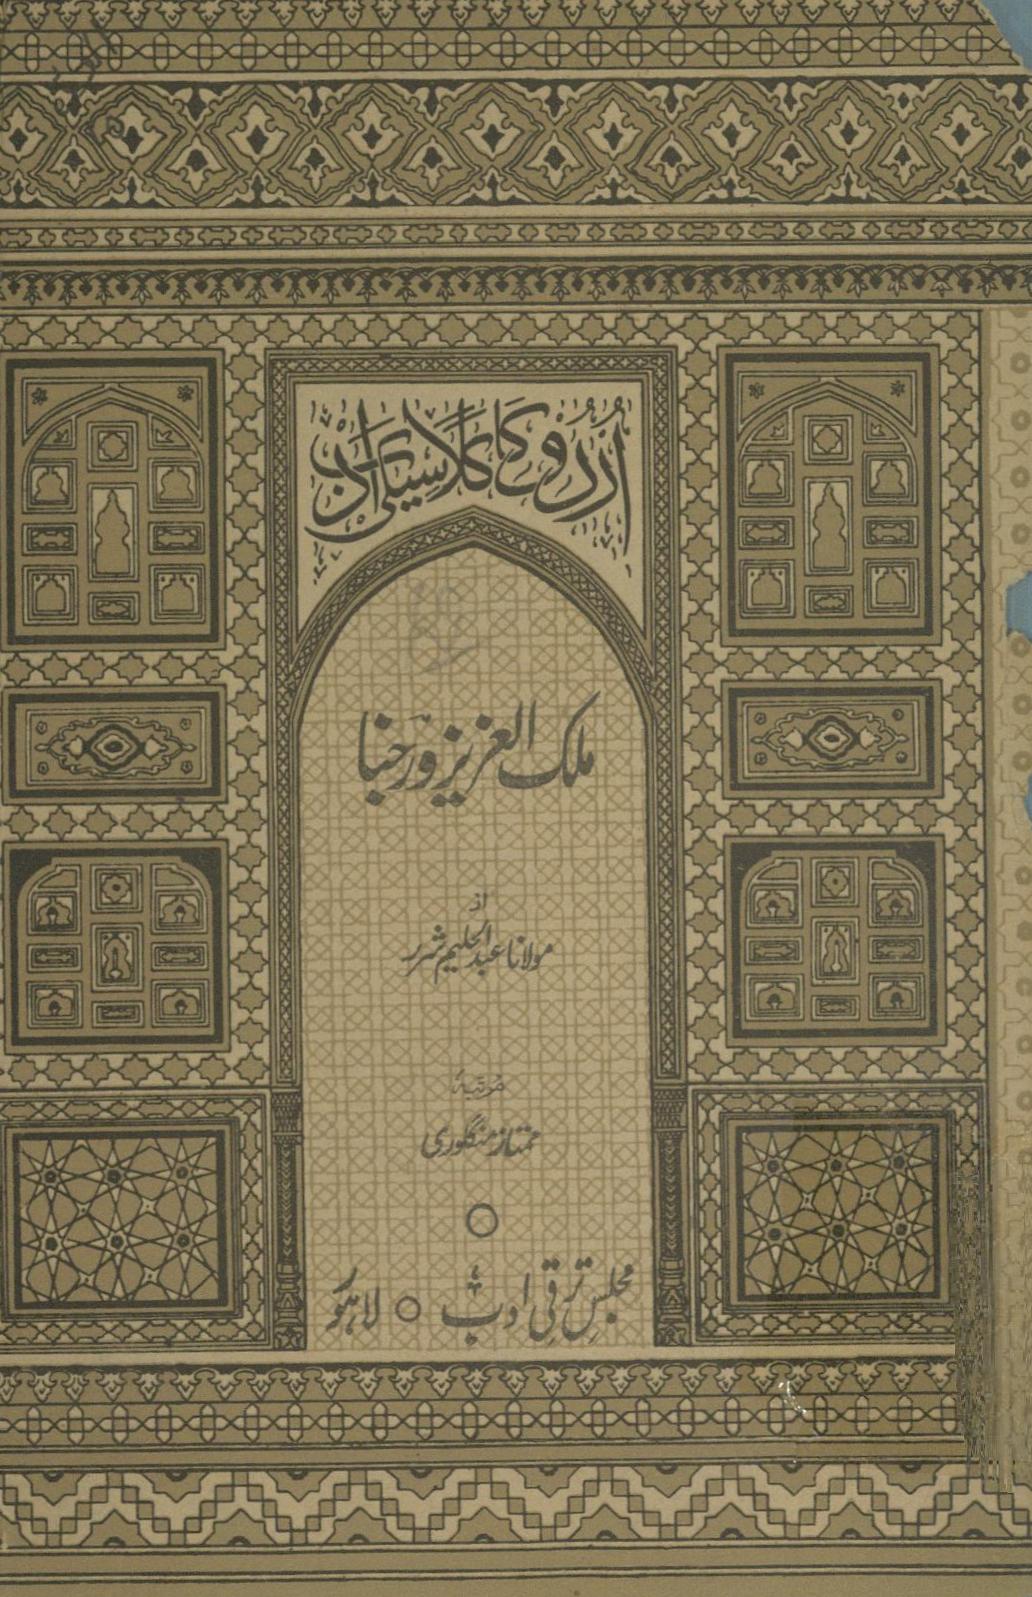 اُردو کا کلاسیکی ادب
ملک العزیز ورجنا
از
مولانا عبدالحلیم شرر
مرتبہ
ممتاز منگلوری
مجلسِ ترقیِ ادب لاہور